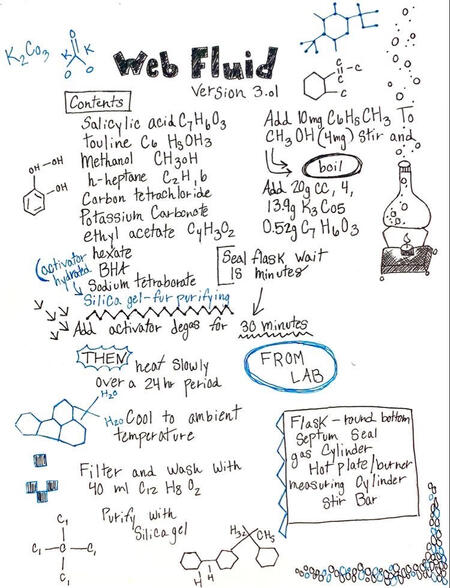 K2CO3
K
K
O
O
O
Web Fluid
Version 3.01
C
C
C
Contents
Salicylic acid C7H6O3
touline C6 H5OH3
Methanol CH3OH
h-heptane C7H,6
Carbon tetrachloride
Potassium Carbonate
ethyl acetate C4H3O2
hexate
BHA
Sodium tetraborate
(activator
hydrated
Silica gel-fur purifying
OH
OH
OH
Add 10mg C6H5CH3 To
CH3OH (4mg) Stir and
boil
Add 20g CC, 4,
13.9g K3CO5
0.52g C7 H6O3
Seal flask wait
18 minutes
Add activator degas for 30 minutes
THEN heat slowly
over a 24 hr period
FROM
LAB
H2O
H2O Cool to ambient
temperature
Filter and Wash with
40 ml C12 H8 O2
Purify with
Silica gel
Flask - round bottom
Septum Seal
gas Cylinder
Hot plate/burner
measuring Cylinder
Stir Bar
C1
C1 C C1
C1
H3C CH3
H
H